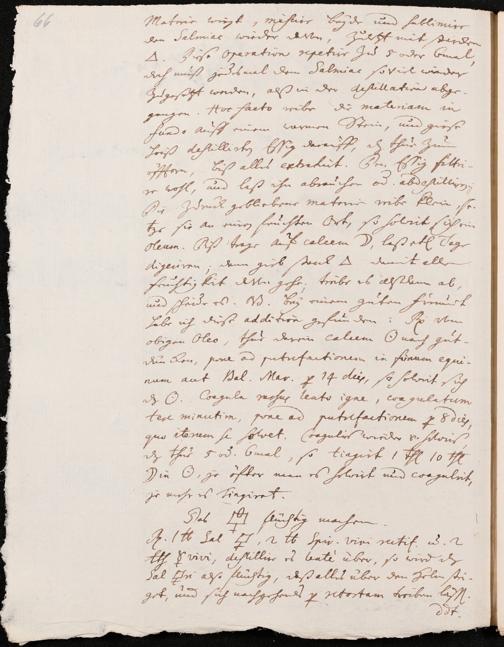 66
Materie wiegt, mischir beyde und sublimire
den Salmiac wieder davon, zuletzt mit starcken
△. Diese operation repetir zu 5 oder 6mal,
doch muß jedesmal dem Salmiac soviel wieder
zugesetzt werden, alß in der destillation abge-
gangen. Hoc facto reibe die materiam in
fundo auff einem warmen Stein, und gieße
destillirten Eßig darauff, thue zum
öfftern, biß alles extrahirt. Den Eßig filtri-
re wohl, und laß ihn abrauchen od. abdestilliren
Die zurück gebliebene materie reibe klein, se-
tze sie an einen feuchten Ort, so solvirt sich ein
oleum. Diß trage auf calcem ☽, laß etl. Tage
digeriren, dann gieb △ damit alle
feuchtigkeit davon gehe, treibe es alßdann ab,
und scheide es. NB. bey einem guten
habe ich diese addition gefunden: Rx vom
obigen Oleo, thue darein calcem ☉ nach gut-
düncken, pone ad putrefactionem in fimum equi-
num aut Bal. Mar. p 14 dies, so solvirt sich
der ☉. Coagula rursus leato igne, coagulatum
tere minutim, pone ad putrefactionem p 8 dies,
quo iterum se solvet. Coagulir wieder u. solvir
thue 5 od. 6mal, so tingirt 1 ℔ 10 ℔
☽ in ☉, je öffter man es solvirt und coagulirt,
je mehr es tingiret.
Das flüchtig machen.
Rx. 1 ℔ Sal , 2 ℔ Spir. vini rectif. u. 2
℔ vivi, destillir es leate über, so wird der
Sal also flüchtig, daß alles über den Helm stei-
get, und sich nachgehends p retortam treiben läßt.